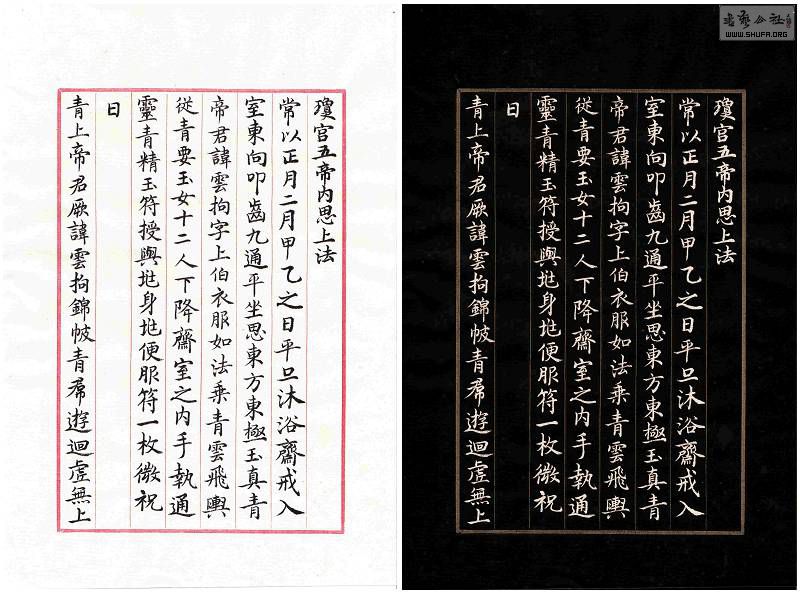 瓊宮五帝內思上法
常以正月二月甲乙之日平旦沐浴齋戒入
室東向叩齒九通平坐思東方東極玉真青
帝君諱雲拘字上伯衣服如法乘青雲飛輿
從青要玉女十二人下降齋室之內手執通
靈青精玉符授與兆身兆便服符一枚微祝
曰
青上帝君厥諱雲拘錦帔青帬遊迴虛無上
書藝公社
WWW.SHUFA.ORG
瓊宮五帝內思上法
常以正月二月甲乙之日平旦沐浴齋戒入
室東向叩齒九通平坐思東方東極玉真青
帝君諱雲拘字上伯衣服如法乘青雲飛輿
從青要玉女十二人下降齋室之內手執通
靈青精玉符授與兆身兆便服符一枚微祝
曰
青上帝君厥諱雲拘錦帔青帬遊迴虛無上